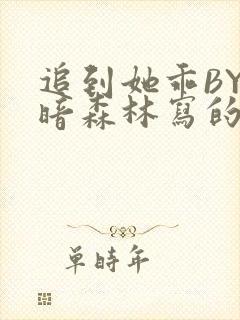 追到她乖BY
暗森林寫的
單時年